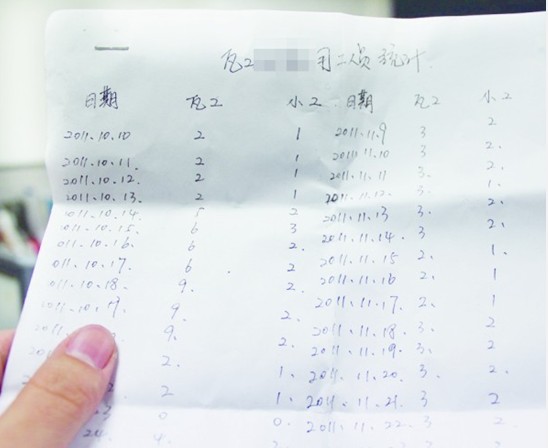 瓦工 用工员统计
日期 瓦工 小工 日期 瓦工 小工
2011.10.10 2 1 2011.11.9 3 2
2011.10.11. 2 1 2011.11.10 3 2.
2011.10.12. 2 1 2011.11.11 3. 2.
2011.10.13. 2 1 2011.11.12. 3. 1.
011.10.14. 5 2 2011.11.13 3. 2.
011.10.15. 6 3 2011.11.14. 3. 2.
011.10.16. 6 2. 2011.11.15 2. 1.
011.10.17. 6 2 2011.11.16 2. 1
011.10.18. 9. 2. 2011.11.17. 2. 1
011.10.19. 9. 2. 2011.11.18. 3. 2
9. 2. 2011.11.19. 3. 2
2. 1. 2011.11.20. 3. 2
2 1. 2011.11.21. 3 2
0 0. 2011.11.22. 3 2
4.